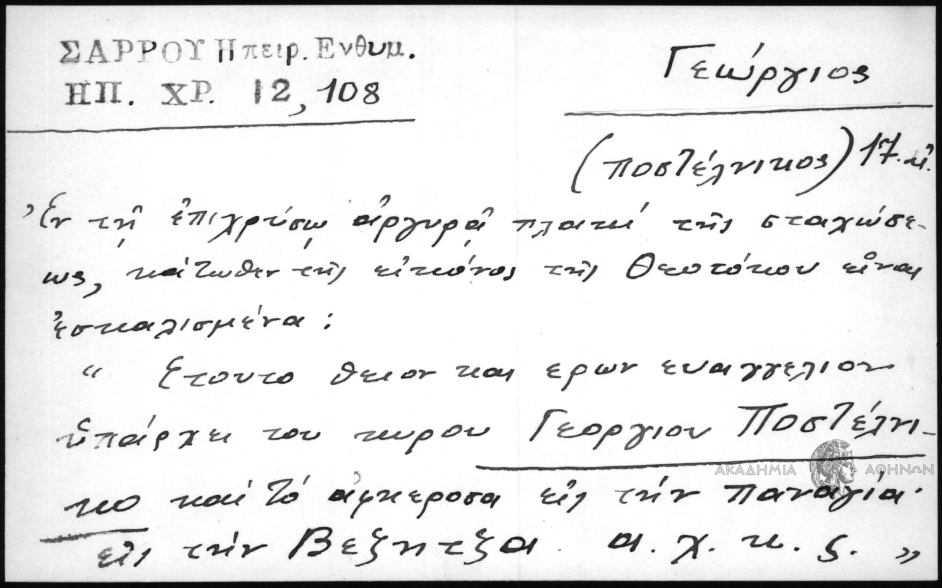 ΣΑΡΡΟΥ Ηπειρ. Ενθυμ.
ΗΠ. ΧΡ. 12, 108
Γεώργιος
(ποστέλνικος) 17. αἰ.
Ἐν τῇ ἐπιχρύσῳ ἀργυρᾷ πλακί τῆς σταχώσε-
ως, κάτωθεν τῆς εἰκόνος τῆς Θεοτόκου εἶναι
ἐσκαλισμένα:
“ Ετουτο θειον και ερων ευαγγελιον
ὑπάρχει του κυρου Γεοργιου Ποστέλνι-
κο καί τό ἀφιεροσα εἰς τήν παναγία·
εἰς τήν Βεζητζα α. χ. κ. ς. ”
ΑΚΑΔΗΜΙΑ ΑΘΗΝΩΝ